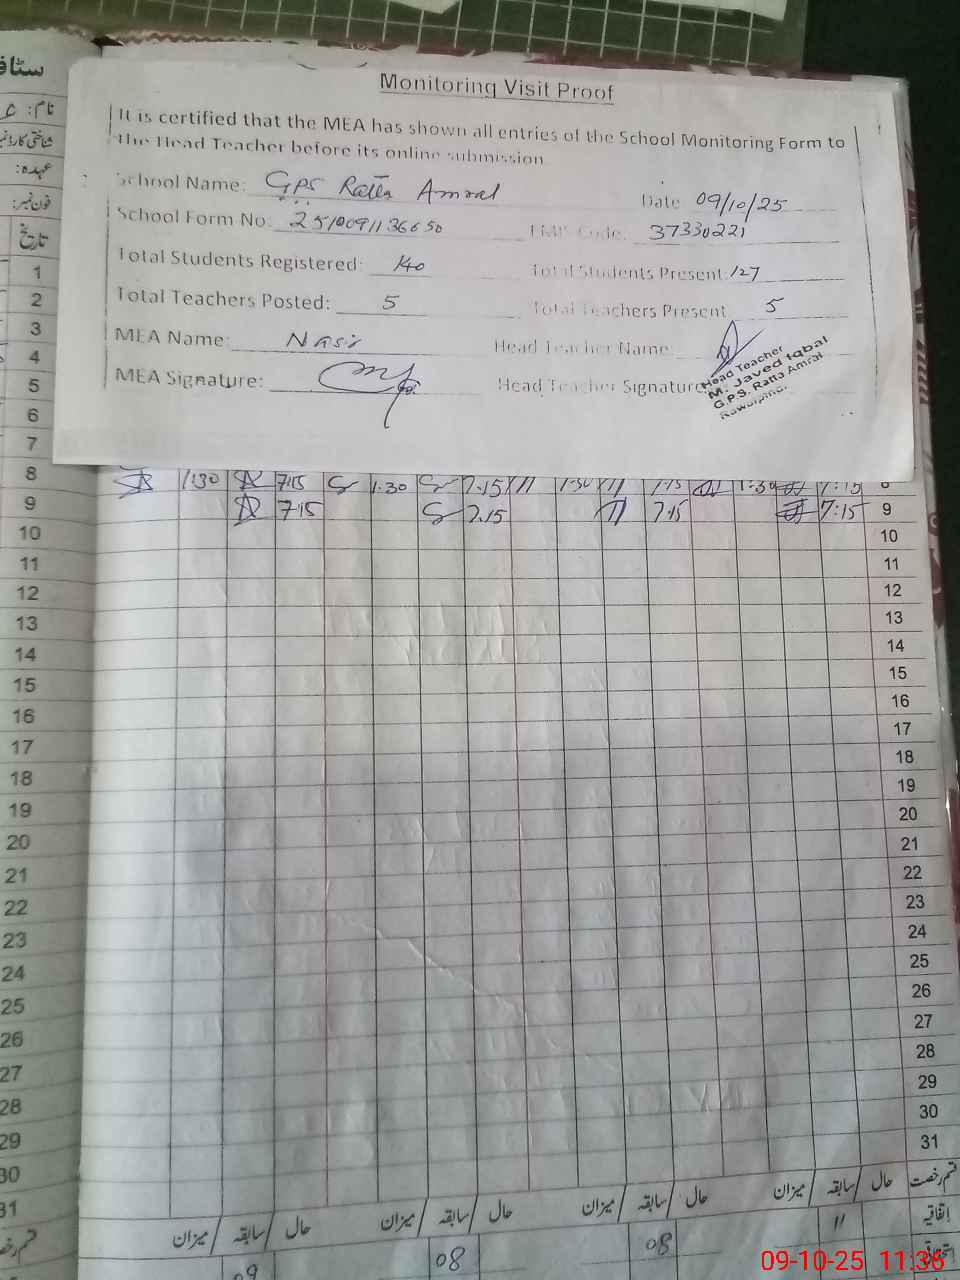 Monitoring Visit Proof
It is certified that the MEA has shown all entries of the School Monitoring Form to
the Head Teacher before its online submission
School Name: GPS Ratta Amral Date 09/10/25
School Form No: 2510091136650 EMIS Code: 37330221
Total Students Registered: 140 Total Students Present: 127
Total Teachers Posted: 5 Total Teachers Present 5
MEA Name: Nasir Head Teacher Name:
MEA Signature: Head Teacher Signature
Head Teacher
M. Javed Iqbal
G.P.S. Ratta Amral
Rawalpindi.
نام:
عہدہ:
فون نمبر:
تاریخ
1
2
3
4
5
6
7
8 1:30 7:15 1.30 7.15 1:30 7:15 1:30 7:15 8
9 7:15 7.15 7:15 7:15 9
10 10
11 11
12 12
13 13
14 14
15 15
16 16
17 17
18 18
19 19
20 20
21 21
22 22
23 23
24 24
25 25
26 26
27 27
28 28
29 29
30 30
31 31
قسم رخصت حال سابقہ میزان حال سابقہ میزان حال سابقہ میزان حال سابقہ میزان
اتفاقیہ 11 08 08 09
09-10-25 11:36